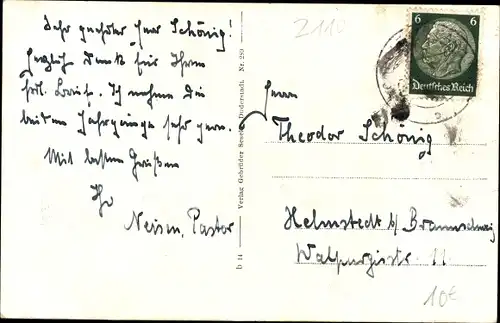 Sehr geehrter Herr Schönig!
Herzlich Dank für Ihren
frdl. Brief. Ich nehme die
beiden Jahrgänge sehr gern.
Mit besten Grüßen
Ihr
Neisen, Pastor
Verlag Gebrüder Duderstadt. Nr. 280
D 14
2110
6 6
Deutsches Reich
Herrn
Theodor Schönig
Helmstedt b/ Braunschweig
Walpurgisstr. 11.
10€